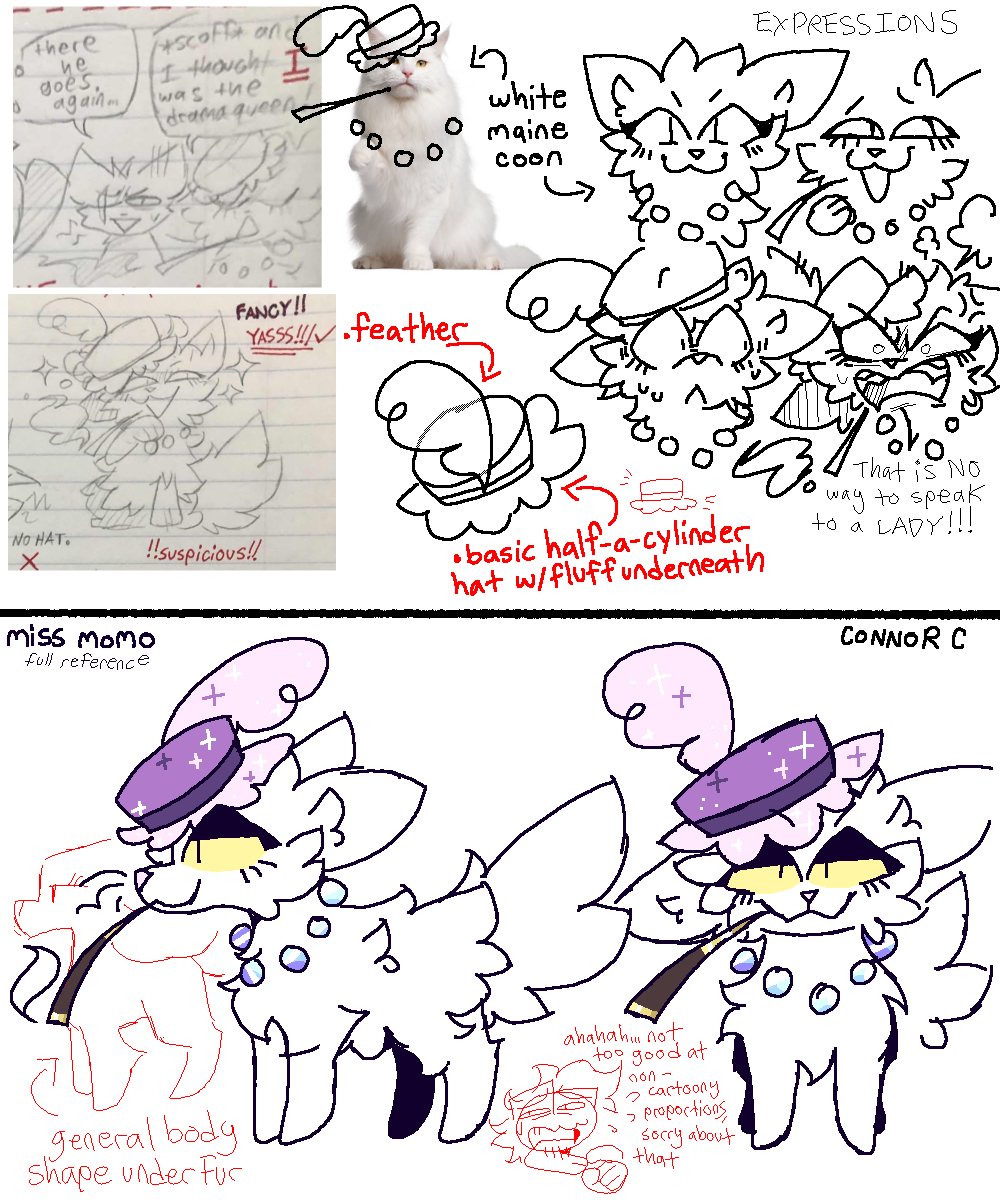 there
he
goes.
again...
*scoff* and
I thought I
was the
drama queen!
white
maine
coon
EXPRESSIONS
FANCY!!
YASSS!!!
NO HAT.
!!suspicious!!
.feather
.basic half-a-cylinder
hat w/fluff underneath
That is NO
way to speak
to a LADY!!!
miss momo
full reference
CONNOR C
general body
shape under fur
ahahah... not
too good at
non-
cartoony
proportions,
sorry about
that